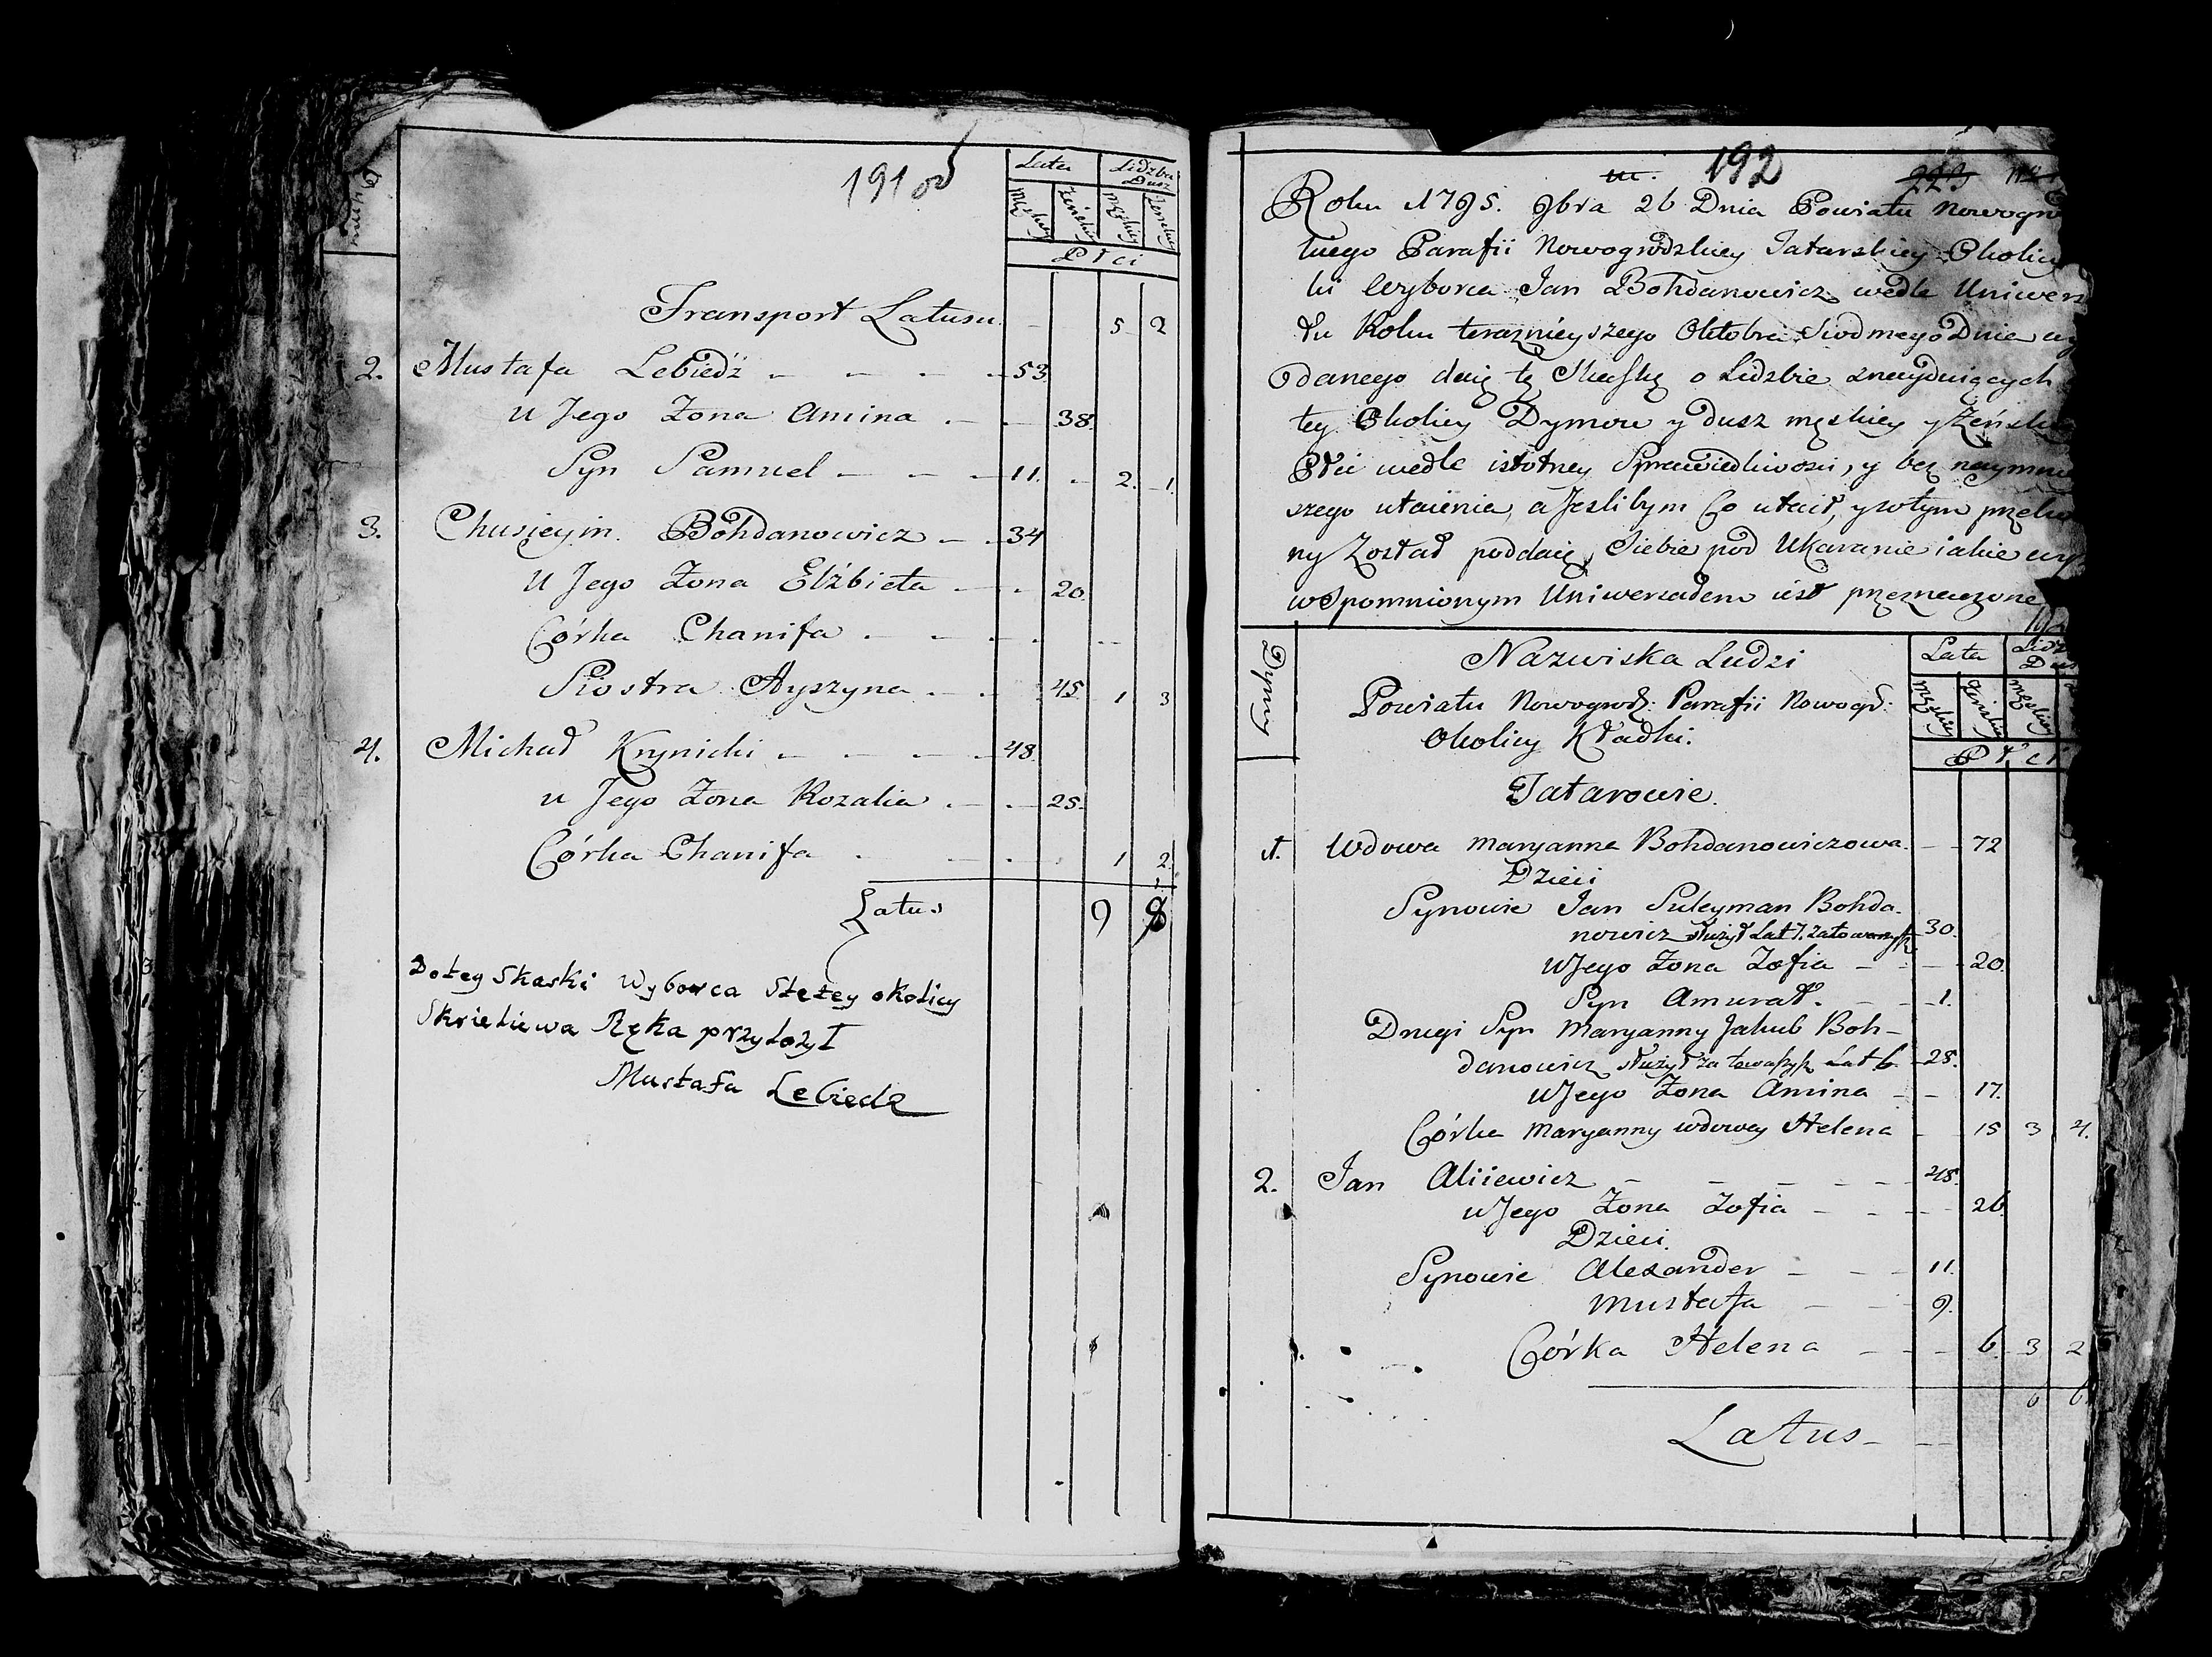 191 od
Dymy
Lata
Lidzba Dusz
Męskiey Żeńskiey Męskiey Żenskiey
Płci
Transport Latusu 5 2
2. Mustafa Lebiedź 53
U Jego Żona Amina 38.
Syn Samuel 11. 2. 1.
3. Chusieyin Bohdanowicz 34
U Jego Żona Elżbieta 20.
Córka Chanifa
Siostra Ayszyna 45 1 3
4. Michał Krynicki 48.
u Jego Żona Rozalia 25.
Córka Chanifa 1 2.
Latus 9 8
Dotey Skaski Wyborca Stetey okolicy
Skrietiewa Ręka przyłożył
Mustafa Lebiedź
192
223
Roku 1795. 9bra 26 Dnia Powiatu Nowogro
kiego Parafii Nowogrodzkiey Tatarskiey Okolicy
ki Wyborca Jan Bohdanowicz wedle Uniwers
łu Roku teraznieyszego Oktobra Siodmego Dnia wy
danego daię tę Skaskę o Lidzbie znayduiących
tey Okolicy Dymow y dusz męskiey y Żeńskiey
Płci wedle istotney Sprawiedliwosci, y bez naymniey
szego utaienia, a Jeslibym Co utaił, y wtym przeko
ny Został poddaię Siebie pod Ukaranie iakie wy
wspomnionym Uniwersałem iest przeznaczone
Dymy
Nazwiska Ludzi
Powiatu Nowogrodz: Parafii Nowogr:
Okolicy Kładki.
Lata
Męskiey Żeńskiey Męskiey
Płci
Tatarowie.
1. Wdowa Maryanna Bohdanowiczowa 72
Dzieci
Synowie Jan Suleyman Bohda-
nowicz służył Lat 7. za towarzysza 30.
U Jego Żona Zofia 20.
Syn Amurat. 1.
Drugi Syn Maryanny Jakub Boh-
danowicz służył za towarzysza Lat 6 28.
U Jego Żona Amina 17.
Córka Maryanny wdowey Helena 15 3 4.
2. Jan Aliiewicz 48.
U Jego Żona Zofia 26.
Dzieci.
Synowie Alexander 11.
Mustafa 9.
Córka Helena 6. 3 2
6 6
Latus